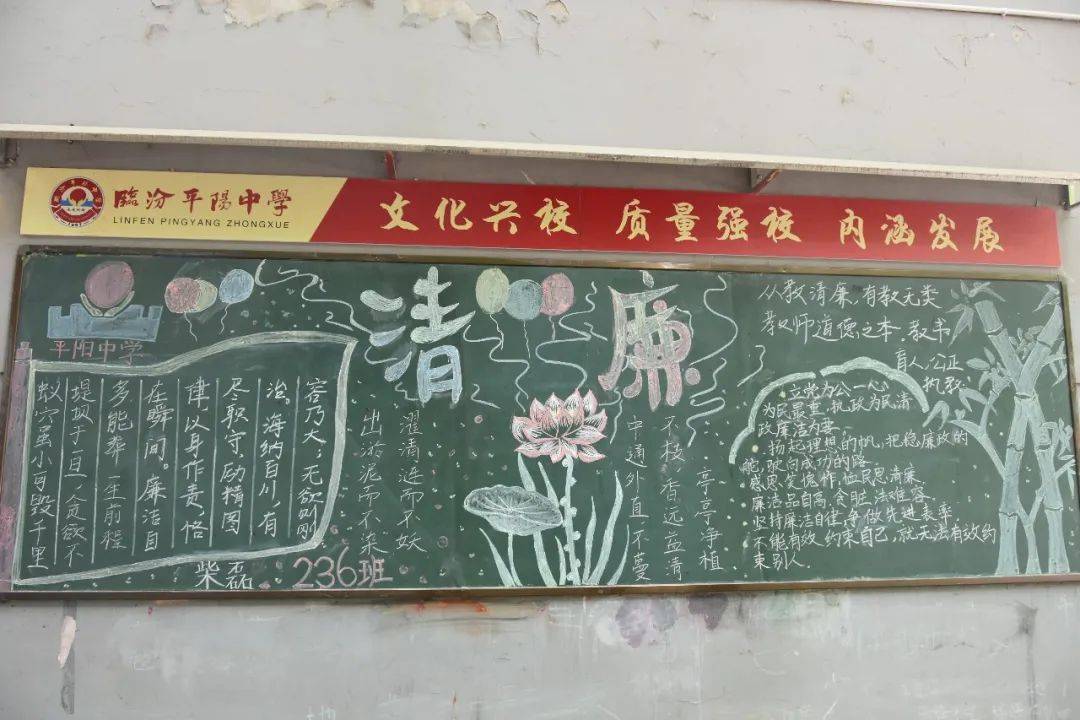 臨汾平陽中學
LINFEN PINGYANG ZHONGXUE
文化兴校 质量强校 内涵发展
清廉
平阳中学
蚁穴虽小可毁千里
堤坝于一旦一贪欲不
多能牵一生前程
在瞬间。廉洁自
律,以身作责,恪
尽职守,励精图
治。海纳百川,有
容乃大;无欲则刚
柴磊 236班
出淤泥而不染
濯清涟而不妖
中通外直,不蔓
不枝香远益清
亭亭净植
从教清廉,有教无类
教师道德之本,教书
育人,公正
执教
立党为公一心
为民最重,执政为民清
政廉洁为要
扬起理想的帆,把稳廉政的
舵,驶向成功的路
感恩
廉洁品自高,贪赃法难容
坚持廉洁自律,争做先进表率
不能有效约束自己,就无法有效约
束别人.